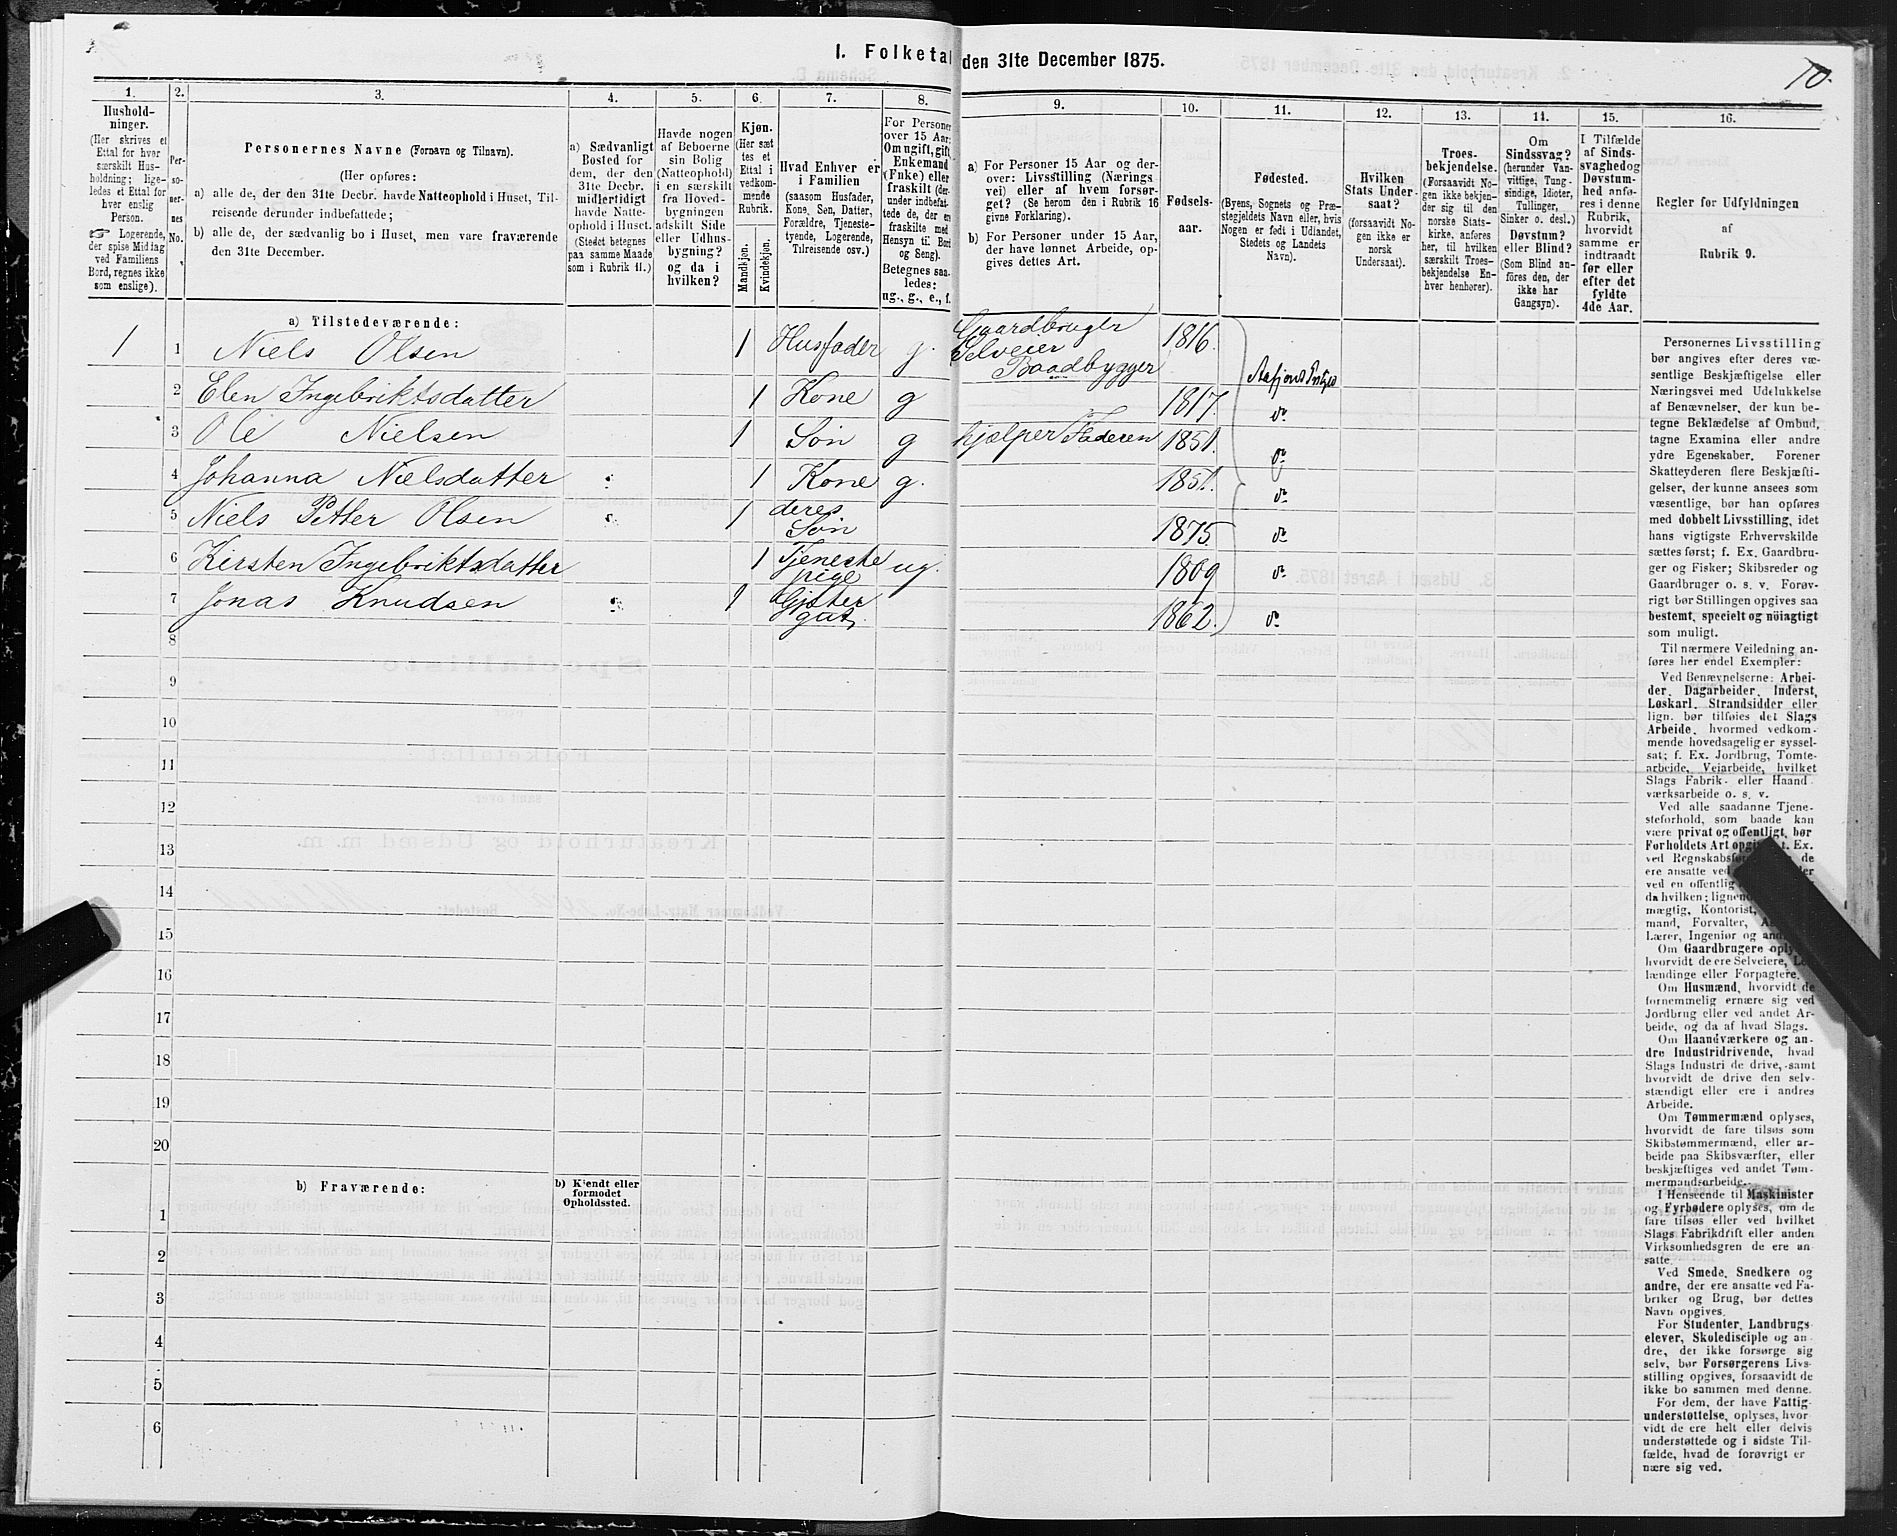 I. Folketal den 31te December 1875.
10.
1.
2.
3.
4.
5.
6.
7.
8.
9.
10.
11.
12.
13.
14.
15.
16.
Hushold-
ninger.
(Her skrives et
Ettal for hver
særskilt Hus-
holdning; lige-
ledes et Ettal for
hver enslig
Person.
☞ Logerende,
der spise Middag
ved Familiens
Bord, regnes ikke
som enslige).
Per-
so-
ner-
nes
No.
Personernes Navne (Fornavn og Tilnavn).
(Her opføres:
a) alle de, der den 31te Decbr. havde Natteophold i Huset, Til-
reisende derunder indbefattede;
b) alle de, der sædvanlig bo i Huset, men vare fraværende
den 31te December.
a) Sædvanligt
Bosted for
dem, der den
31te Decbr.
midlertidigt
havde Natte-
ophold i Huset.
(Stedet betegnes
paa samme Maade
som i Rubrik 11.)
Havde nogen
af Beboerne
sin Bolig
(Natteophold)
i en særskilt
fra Hoved-
bygningen
adskilt Side
eller Udhus-
bygning?
og da i
hvilken?
Kjøn.
(Her sæt
tes et
Ettal i
vedkom-
mende
Rubrik.
Mandkjøn.
Kvindekjøn.
Hvad Enhver er
i Familien
(saasom Husfader,
Kone, Søn, Datter,
Forældre, Tjeneste-
tyende, Logerende,
Tilreisende osv.)
For Personer
over 15 Aar:
Om ugift, gift,
Enkemand
(Enke) eller
fraskilt (der-
under indbefat-
tede de, der ere
fraskilte med
Hensyn til Bord
og Seng).
Betegnes saa-
ledes:
ug., g., e., f.
a) For Personer 15 Aar og der-
over: Livsstilling (Nærings
vei) eller af hvem forsør-
get? (Se herom den i Rubrik 16
givne Forklaring).
b) For Personer under 15 Aar,
der have lønnet Arbeide, op-
gives dettes Art.
Fødsels-
aar.
Fødested.
(Byens, Sognets og Præ-
stegjeldets Navn eller, hvis
Nogen er født i Udlandet,
Stedets og Landets
Navn).
Hvilken
Stats Under-
saat?
(forsaavidt No-
gen ikke er
norsk
Undersaat).
Troes-
bekjendelse.
(Forsaavidt No-
gen ikke bekjen-
der sig til den
norske Stats-
kirke, anføres
her, til hvilken
særskilt Troes-
bekjendelse En-
hver henhører).
Om
Sindssvag?
(herunder Van-
vittige, Tung-
sindige, Idioter,
Tullinger,
Sinker o. desl.)
Døvstum?
eller Blind?
(Som Blind an-
føres den, der
ikke har
Gangsyn).
I Tilfælde
af Sinds-
svaghed og
Døvstum-
hed anfø-
res i denne
Rubrik,
hvorvidt
samme er
indtraadt
før eller
efter det
fyldte
4de Aar.
Regler for Udfyldningen
af
Rubrik 9.
a) Tilstedeværende:
1 1 Niels Olsen 1 Husfader g. Gaardbruger Selveier Baadbygger 1816.
2 Elen Ingebriktsdatter 1 Kone g 1817. do
3 Ole Nielsen 1 Søn g hjælper Faderen 1851. do
4 Johanna Nielsdatter 1 Kone g. 1851. do
5 Niels Petter Olsen 1 deres Søn 1875 do
6 Kirsten Ingebriktsdatter 1 Tjeneste pige ug. 1809 do
7 Jonas Knudsen 1 1862. do
8
9
10
11
12
13
14
15
16
17
18
19
20
b) Fraværende:
b) Kjendt eller
formodet
Opholdssted.
1
2
3
4
5
6
Personernes Livsstilling
bør angives efter deres væ-
sentlige Beskjæftigelse eller
Næringsvei med Udelukkelse
af Benævnelser, der kun be-
tegne Beklædelse af Ombud,
tagne Examina eller andre
ydre Egenskaber. Forener
Skatteyderen flere Beskjæfti-
gelser, der kunne ansees som
væsentlige, bør han opføres
med dobbelt Livsstilling, idet
hans vigtigste Erhvervskilde
sættes først; f. Ex. Gaardbru-
ger og Fisker; Skibsreder og
Gaardbruger o. s. v. Forøv-
rigt bør Stillingen opgives saa
bestemt, specielt og nöiagtigt
som muligt.
Til nærmere Veiledning an-
føres her endel Exempler:
Ved Benævnelserne: Arbei-
der, Dagarbeider, Inderst,
Løskarl, Strandsidder eller
lign. bør tilføies det Slags
Arbeide, hvormed vedkom-
mende hovedsagelig er syssel-
sat; f. Ex. Jordbrug, Tomte-
arbeide, Veiarbeide, hvilket
Slags Fabrik- eller Haand
værksarbeide o. s. v.
Ved alle saadanne Tjene-
steforhold, som baade kan
være privat og offentligt, bør
Forholdets Art t. Ex.
ved de
ere ansatte ved
ved en offentlig
da hvilken;
mægtig, Kontorist,
mand, Forvalter,
Lærer, Ingeniør og
Om Gaardbrugere
hvorvidt de ere Selveiere,
lændinge eller Forpagtere.
Om Husmænd, hvorvidt de
fornemmelig ernære sig ved
Jordbrug eller ved andet Ar-
beide, og da af hvad Slags.
Om Haandværkere og an-
dre Industridrivende, hvad
Slags Industri de drive, samt
hvorvidt de drive den selv-
stændigt eller ere i andres
Arbeide.
Om Tømmermænd oplyses,
hvorvidt de fare tilsøs som
Skibstømmermænd, eller ar-
beide paa Skibsværfter, eller
beskjæftiges ved andet Tøm-
mermandsarbeide.
I Henseende til Maskinister
og Fyrbødere oplyses, om de
fare tilsøs eller ved hvilket
Slags Fabrikdrift eller anden
Virksomhedsgren de ere an-
satte.
Ved Smede, Snedkere og
andre, der ere ansatte ved Fa-
briker og Brug, bør dettes
Navn opgives.
For Studenter, Landbrugs-
elever, Skoledisciple og an-
dre, der ikke forsørge sig
selv, bør Forsørgerens Livs-
stilling opgives, forsaavidt de
ikke bo sammen med denne.
For dem, der have Fattig-
understøttelse, oplyses, hvor-
vidt de ere helt eller delvis
understøttede og i sidste Til-
fælde, hvad de forøvrigt er
nære sig ved.